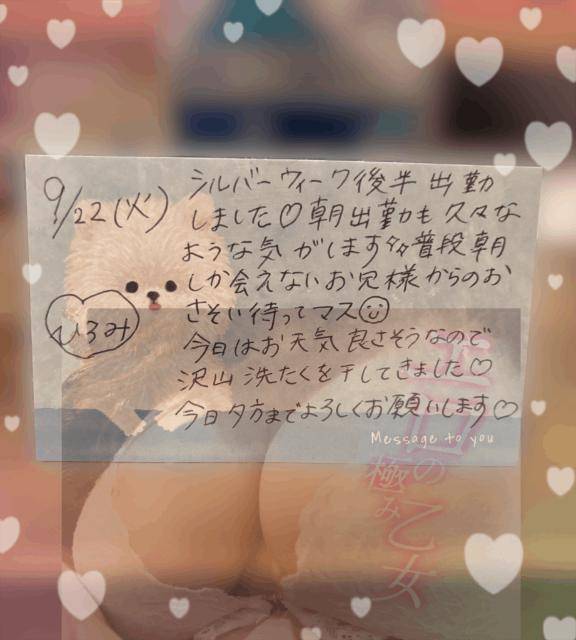 9/22(火)
シルバーウィーク後半 出勤
しました♡朝出勤も 久々な
ような気がします💦普段 朝
しか会えないお兄様からのお
さそい待ってマス☺
ひろみ
今日はお天気 良さそうなので
沢山 洗たくを干してきました♡
今日夕方までよろしくお願いします♡
Message to you
の
極み
乙女